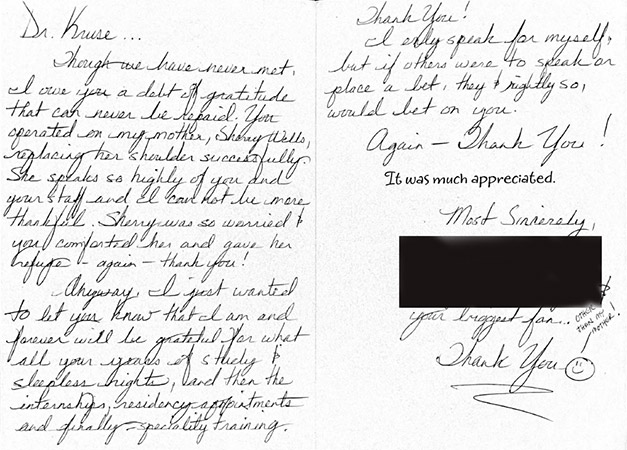 Dr. Kruse...
Though we have never met,
I owe you a debt of gratitude
that can never be repaid. You
operated on my mother, Sherry Wells,
replacing her shoulder successfully.
She speaks so highly of you and
your staff and I can not be more
thankful. Sherry was so worried &
you comforted her and gave her
refuge - again - thank you!
Anyway, I just wanted
to let you know that I am and
forever will be grateful for what
all your years of study &
sleepless nights, and then the
internships, residency appointments
and finally speciality training.
Thank You!
I only speak for myself,
but if others were to speak or
place a bet, they & rightly so,
would bet on you.
Again - Thank You!
It was much appreciated.
Most Sincerely,
&
your biggest fan...
OTHER
THAN MY
MOTHER!
Thank You